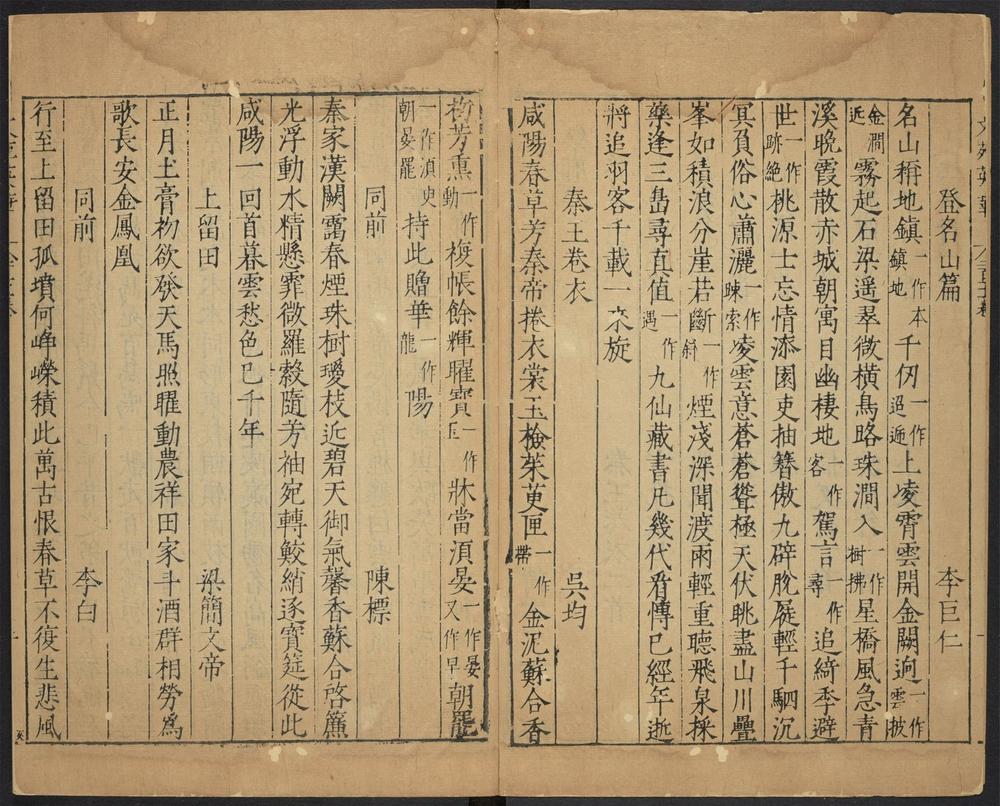 登名山篇 李巨仁
名山稱地鎮一作本鎮地千仞一作迢遞上凌霄雲開金闕逈一作雲披
金澗近霧起石梁遥翠微橫鳥路珠澗入一作樹拂星橋風急青
溪晚霞散赤城朝寓目幽棲地一作客駕言一作尋追綺季避
世一作跡絶桃源士忘情漆園吏抽簪傲九辟脫屣輕千駟沉
冥負俗心蕭灑一作疎索凌雲意蒼蒼聳極天伏眺盡山川疊
峯如積浪分崖若斷一作斜煙淺深聞渡雨輕重聽飛泉採
藥逢三島尋真值一作遇九仙藏書凡幾代看傳已經年逝
將追羽客千載一來旋
秦王卷衣 吳均
咸陽春草芳秦帝捲衣裳玉檢茱萸匣一作帶金泥蘇合香
初芳熏一作動複帳餘輝曜寶一作玉牀當湏晏一作晏又作早朝罷
一作湏史朝晏罷持此贈華一作龍陽
同前 陳標
秦家漢闕靄春煙珠樹瓊枝近碧天御氣馨香蘇合啓簾
光浮動水精懸霏微羅縠隨芳袖宛轉鮫綃逐寳筵從此
咸陽一回首暮雲愁色已千年
上留田 梁簡文帝
正月土膏初欲發天馬照曜動農祥田家斗酒群相勞爲
歌長安金鳳凰
同前 李白
行至上留田孤墳何崢嶸積此萬古恨春草不復生悲風